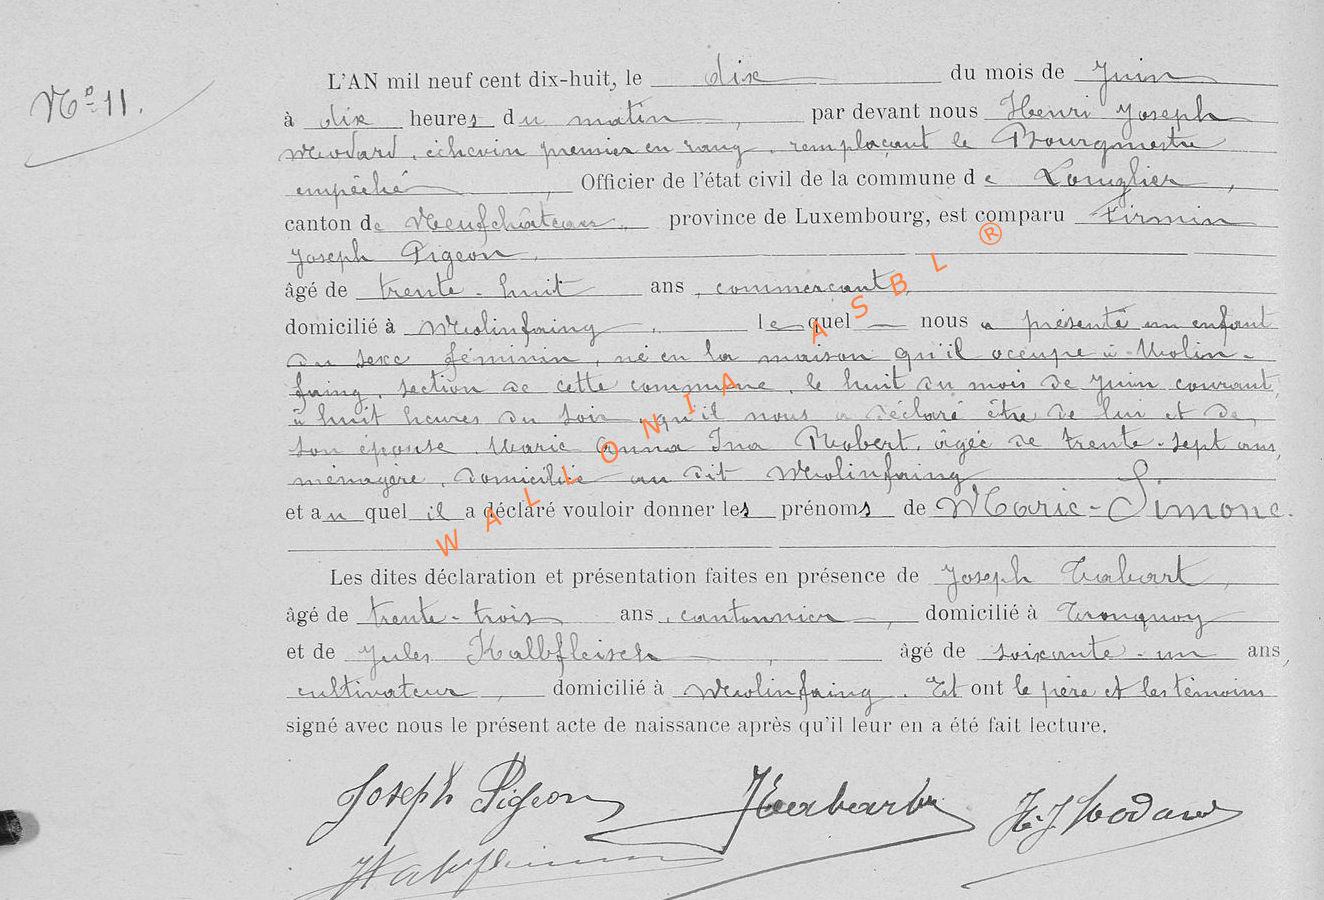 Nº 11.
L'AN mil neuf cent dix-huit, le dix du mois de Juin
à dix heures du matin, par devant nous Henri Joseph
Modard, échevin premier en rang, remplaçant le Bourgmestre
empêché, Officier de l'état civil de la commune de Longlier,
canton de Neufchâteau, province de Luxembourg, est comparu Firmin
Joseph Pigeon,
âgé de trente-huit ans, commerçant,
domicilié à Molinfaing, lequel nous a présenté un enfant
du sexe féminin, né en la maison qu'il occupe à Molin-
faing, section de cette commune, le huit du mois de Juin courant,
à huit heures du soir, qu'il nous a déclaré être de lui et de
son épouse, Marie Anna Ina Robert, âgée de trente-sept ans,
ménagère, domiciliée au dit Molinfaing
et au quel il a déclaré vouloir donner les prénoms de Marie-Simone.
Les dites déclaration et présentation faites en présence de Joseph Trabart,
âgé de trente-trois ans, cantonnier, domicilié à Tronquoy
et de Jules Kalbfleisch, âgé de soixante-un ans,
cultivateur, domicilié à Molinfaing. Et ont le père et les témoins
signé avec nous le présent acte de naissance après qu'il leur en a été fait lecture.
Joseph Pigeon H. J. Modard
WALLONIA ASBL ®